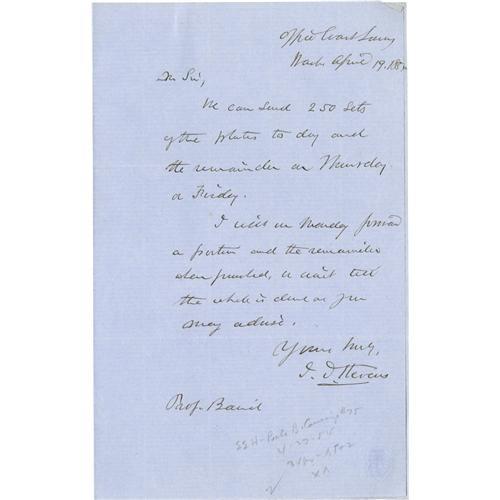 Office Coast Survey
Wash. April 19. 185
My Sir,
We can send 250 sets
of the plates to day and
the remainder on Thursday
or Friday.
I will on Monday forward
a portion and the remainder
when finished, or wait till
the whole is done as you
may advise.
Yours truly,
I. I. Stevens
Prof. Baird
4-23-54